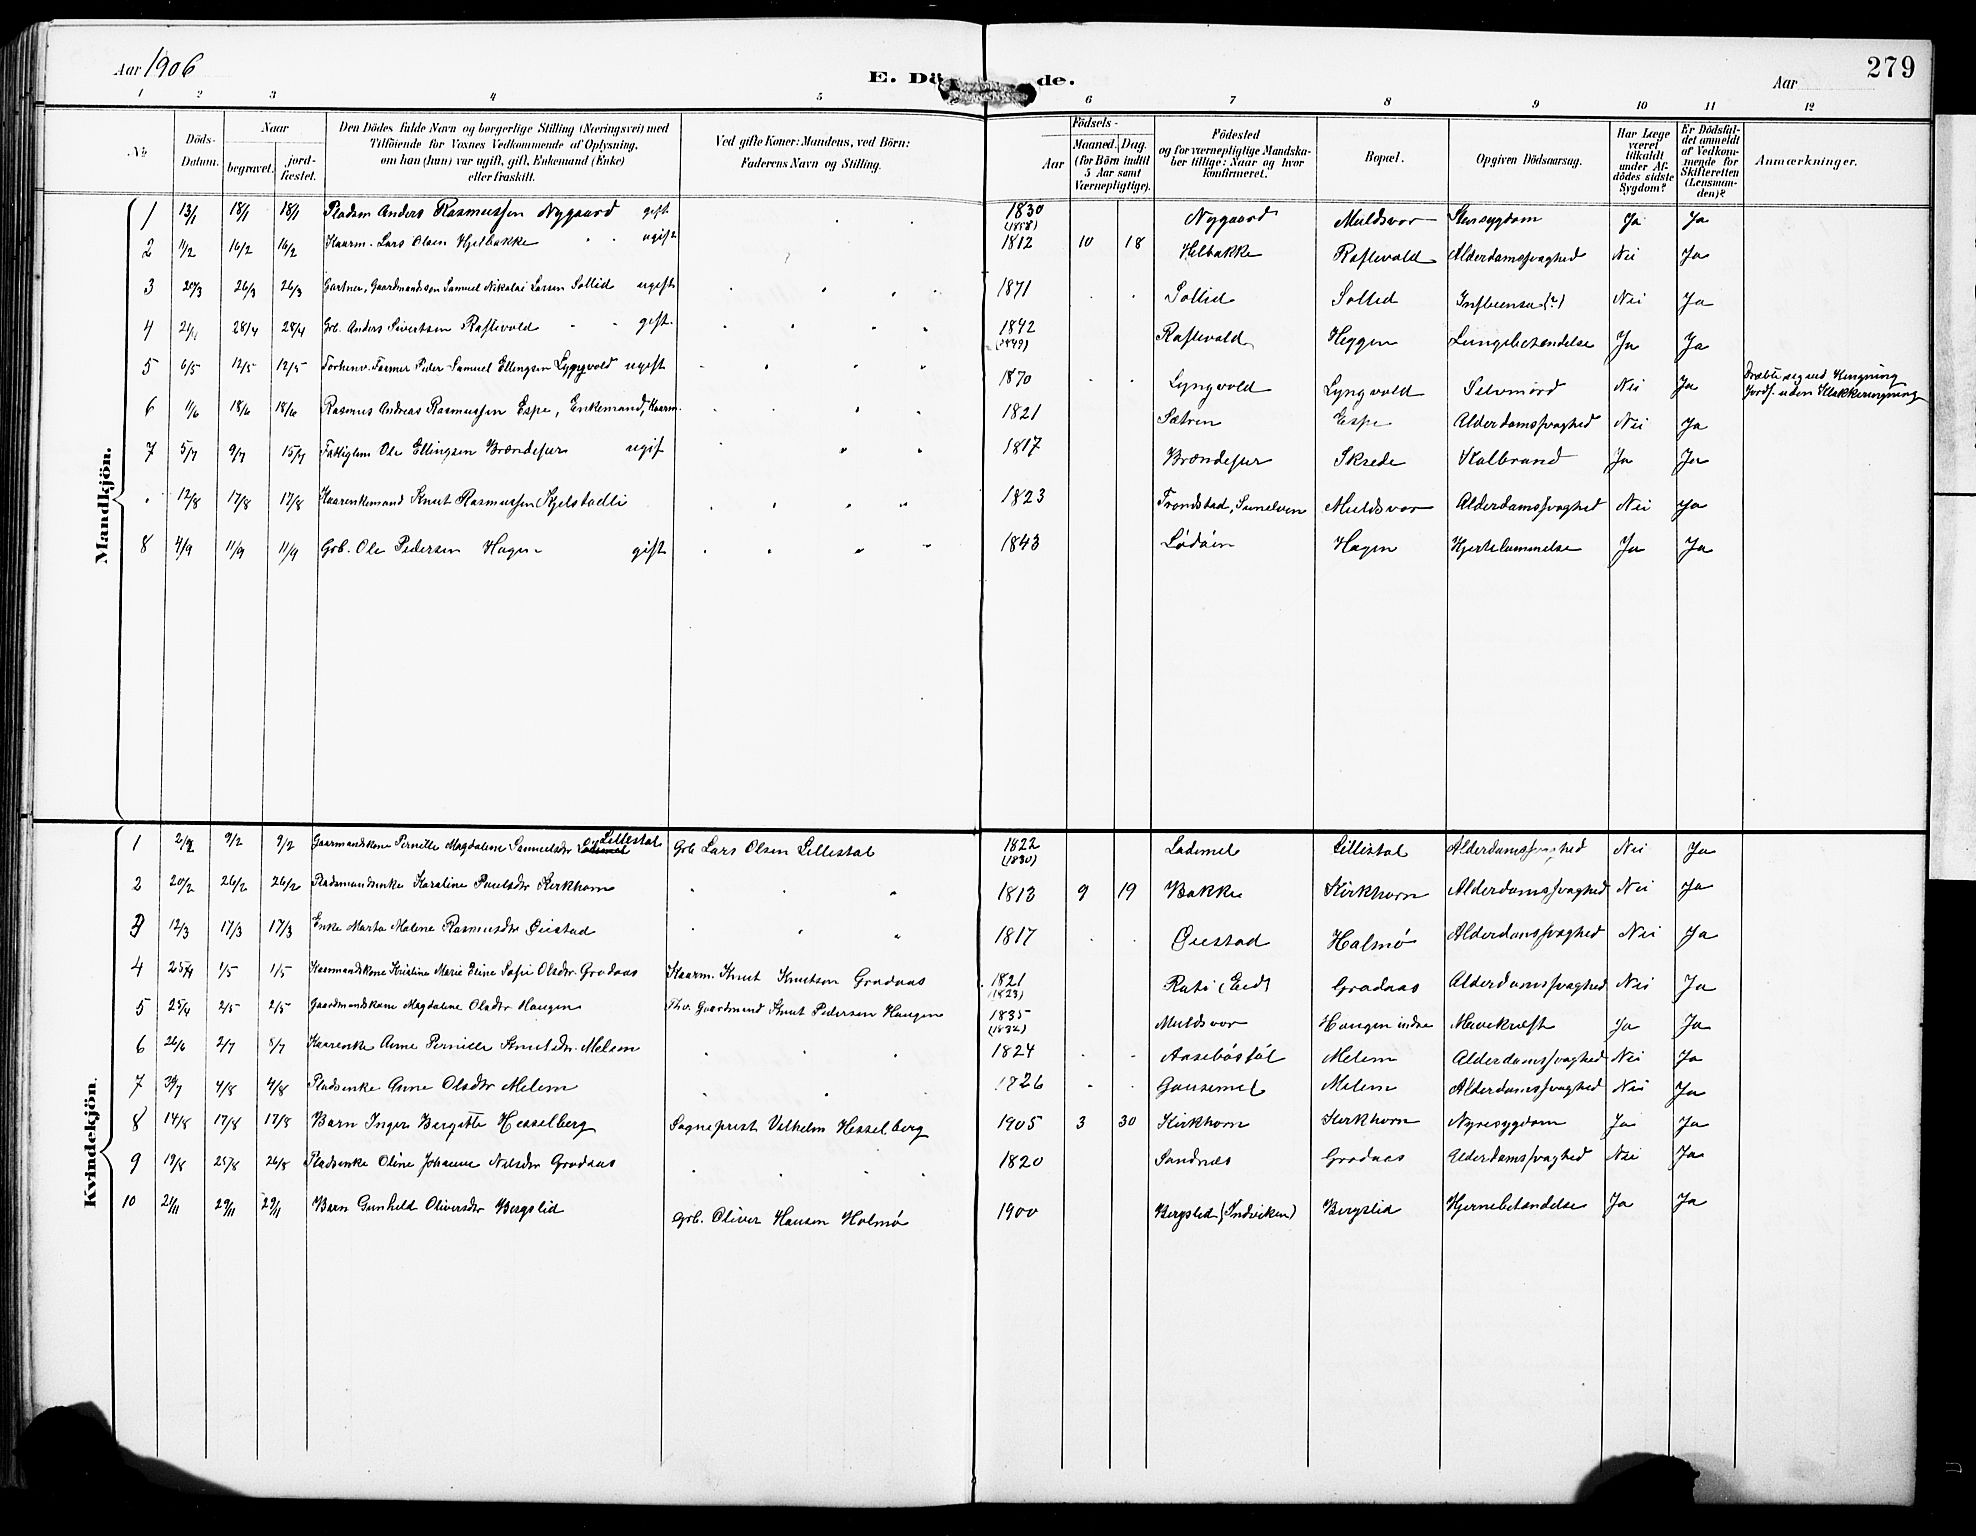 Aar 1906
E. Dö de.
Aar
279
1 2 3 4 5 6 7 8 9 10 11 12
No
Döds-Datum.
Naar
begravet.
jord-fæstet.
Den Dödes fulde Navn og borgerlige Stilling (Næringsvei) med
Tilföiende for Voxnes Vedkommende af Oplysning,
om han (hun) var ugift, gift, Enkemand (Enke)
eller fraskilt.
Ved gifte Koner: Mandens, ved Börn:
Faderens Navn og Stilling.
Födsels-
Aar
Maaned. Dag.
(for Börn indtil
5 Aar samt
Værnepligtige).
Födested
og for værnepligtige Mandska-
ber tillige: Naar og hvor
konfirmeret.
Bopæl.
Opgiven Dödsaarsag.
Har Læge
været
tilkaldt
under Af-
dödes sidste
Sygdom?
Er Dödsfal-
det anmeldt
af Vedkom-
mende for
Skifteretten
(Lensman-
den)?
Anmærkninger.
Mandkjön.
1 13/1 18/1 18/1 Pladsm Anders Rasmussen Nygaard gift 1830 (1828) Nygaard Muldsvor Ja Ja
2 11/2 16/2 16/2 Kaarm. Lars Olsen Hjelbakke ugift 1812 10 18 Helbakke Raftevold Alderdomssvaghed Nei Ja
3 20/3 26/3 26/3 Gartner, Gaardmandssøn Samuel Nikolai Larsen Sollid ugift 1871 Sollid Sollid Influensa (?) Nei Ja
4 21/4 28/4 28/4 Grb. Anders Sivertsen Raftevold gift 1842 (1849) Raftevold Heggen Lungebetændelse Ja Ja
5 6/5 12/5 12/5 Forhenv. Farmer Peder Samuel Ellingsen Lyngvold ugift 1870 Lyngvold Lyngvold Selvmord Nei Ja Dræbte sig ved Hængning
Jordf. uden Klokkeringning
6 11/6 18/6 18/6 Rasmus Andreas Rasmussen Espe, Enkemand, Kaarm. 1821 Sætren Espe Alderdomssvaghed Nei Ja
7 5/7 9/7 15/7 Fattiglem Ole Ellingsen Brændefur ugift 1817 Brændefur Skrede Kolbrand Ja Ja
" 12/8 17/8 17/8 Kaarenkemand Knut Rasmussen Kjelstadli 1823 Trondstad, Sunelven Muldsvor Alderdomssvaghed Nei Ja
8 4/9 11/9 11/9 Grb. Ole Pedersen Hagen gift 1843 Lødøen Hagen Hjertelammelse Ja Ja
Kvindekjön.
1 2/2 9/2 9/2 Gaarmandskone Pernille Magdalene Samuelsdr Lillestøl Grb Lars Olsen Lillestøl 1822 (1830) Lødemel Lillestøl Alderdomssvaghed Nei Ja
2 20/2 26/2 26/2 Pladsmandsenke Karoline Paulsdr Kirkhorn 1813 9 19 Bakke Kirkhorn Alderdomssvaghed Nei Ja
3 12/3 17/3 17/3 Enke Marta Malene Rasmusdtr Øiestad 1817 Øiestad Holmø Alderdomssvaghed Nei Ja
4 25/4 1/5 1/5 Kaarmandskone Kristine Marie Eline Sofie Olsdr. Grodaas Kaarm. Knut Knutson Grodaas 1821 (1823) Eid Grodaas Alderdomssvaghed Nei Ja
5 25/4 2/5 2/5 Gaardmandskone Magdalene Olsdr Haugen Fhv. Gaardmand Knut Pedersen Haugen 1835 (1832) Muldsvor Haugen indre Mavekræft Ja Ja
6 26/6 2/7 8/7 Kaarenke Anne Pernille Knutsdr. Melem 1824 Aasebøstøl Melem Alderdomssvaghed Nei Ja
7 30/7 4/8 4/8 Pladsenke Anne Olsdtr Melem 1826 Gausemel Melem Alderdomssvaghed Nei Ja
8 14/8 17/8 17/8 Barn Inger Bergitte Hesselberg Sogneprest Vilhelm Hesselberg 1905 3 30 Kirkhorn Kirkhorn Nyresygdom Ja Ja
9 19/8 25/8 26/8 Pladsenke Oline Johanne Nilsdtr Grodaas 1820 Sandnæs Grodaas Alderdomssvaghed Nei Ja
10 21/11 29/11 29/11 Barn Gunhild Oliversdtr Bergslid Grb. Oliver Hansen Holmø 1900 Bergslid (Indviken) Bergslid Hjernebetændelse Ja Ja